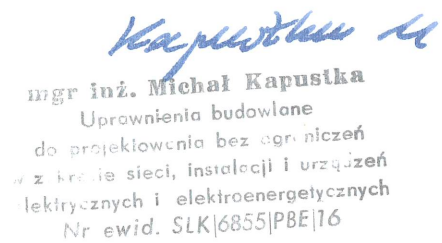 mgr inż. Michał Kapustka
Uprawnienia budowlane
do projektowania bez ograniczeń
w zakresie sieci, instalacji i urządzeń
elektrycznych i elektroenergetycznych
Nr ewid. SLK|6855|PBE|16